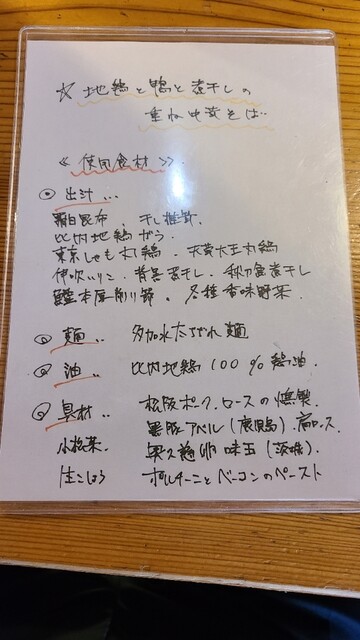 ☆ 地鶏と鴨と煮干しの
重ね中華そば..
≪使用食材≫
◎ 出汁...
羅臼昆布、干し椎茸、
比内地鶏ガラ、
東京しゃも丸鶏、天草大王丸鶏
伊吹いりこ、背黒煮干し、秋刀魚煮干し
本厚削り節、各種香味野菜
◎ 麺.. 多加水太ちぢれ麺
◎ 油.. 比内地鶏100%鶏油.
◎ 具材.. 松阪ポーク、ロースの燻製
黒豚アベル(鹿児島)肩ロース.
小松菜 奥久慈卵 味玉(茨城)
生こしょう ポルチーニとベーコンのペースト